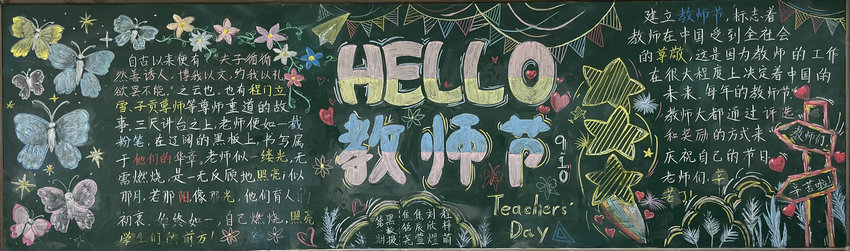 自古以来便有“夫子循循
然善诱人，博我以文，约我以礼，
欲罢不能。”之云也，也有程门立
雪，子贡尊师等尊师重道的故
事。三尺讲台之上，老师便如一截
粉笔，在辽阔的黑板上，书写属
于他们的华章，老师似一缕光，无
需燃烧，是一无反顾地照亮；似
那月，若那阳，像那光，他们育人的
初衷，始终如一，自己燃烧，照亮
学生们的前方！
HELLO
教师节
910
Teachers'
Day
建立教师节，标志着
教师在中国受到全社会
的尊敬，这是因为教师的工作
在很大程度上决定着中国的
未来，每年的教师节
教师大都通过评选
和奖励的方式来
庆祝自己的节日，
老师们，辛
苦！
教师们，
辛苦啦